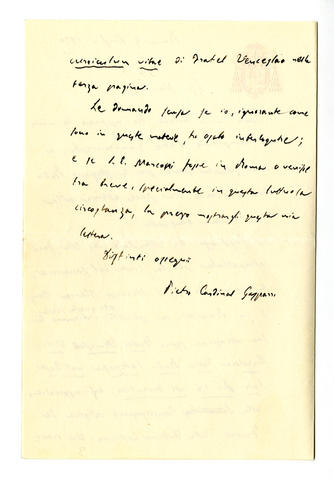 curriculum vitae di Fratel Venceslao nella
terza pagina.
Le domando scusa se io, ignorante come
sono in queste materie, ho osato interloquire;
e se S.E. Marconi fosse in Roma o venisse
tra breve, specialmente in questa luttuosa
circostanza, La prego mostrargli questa mia
lettera.
Distinti ossequi
Pietro Cardinal Gasparri